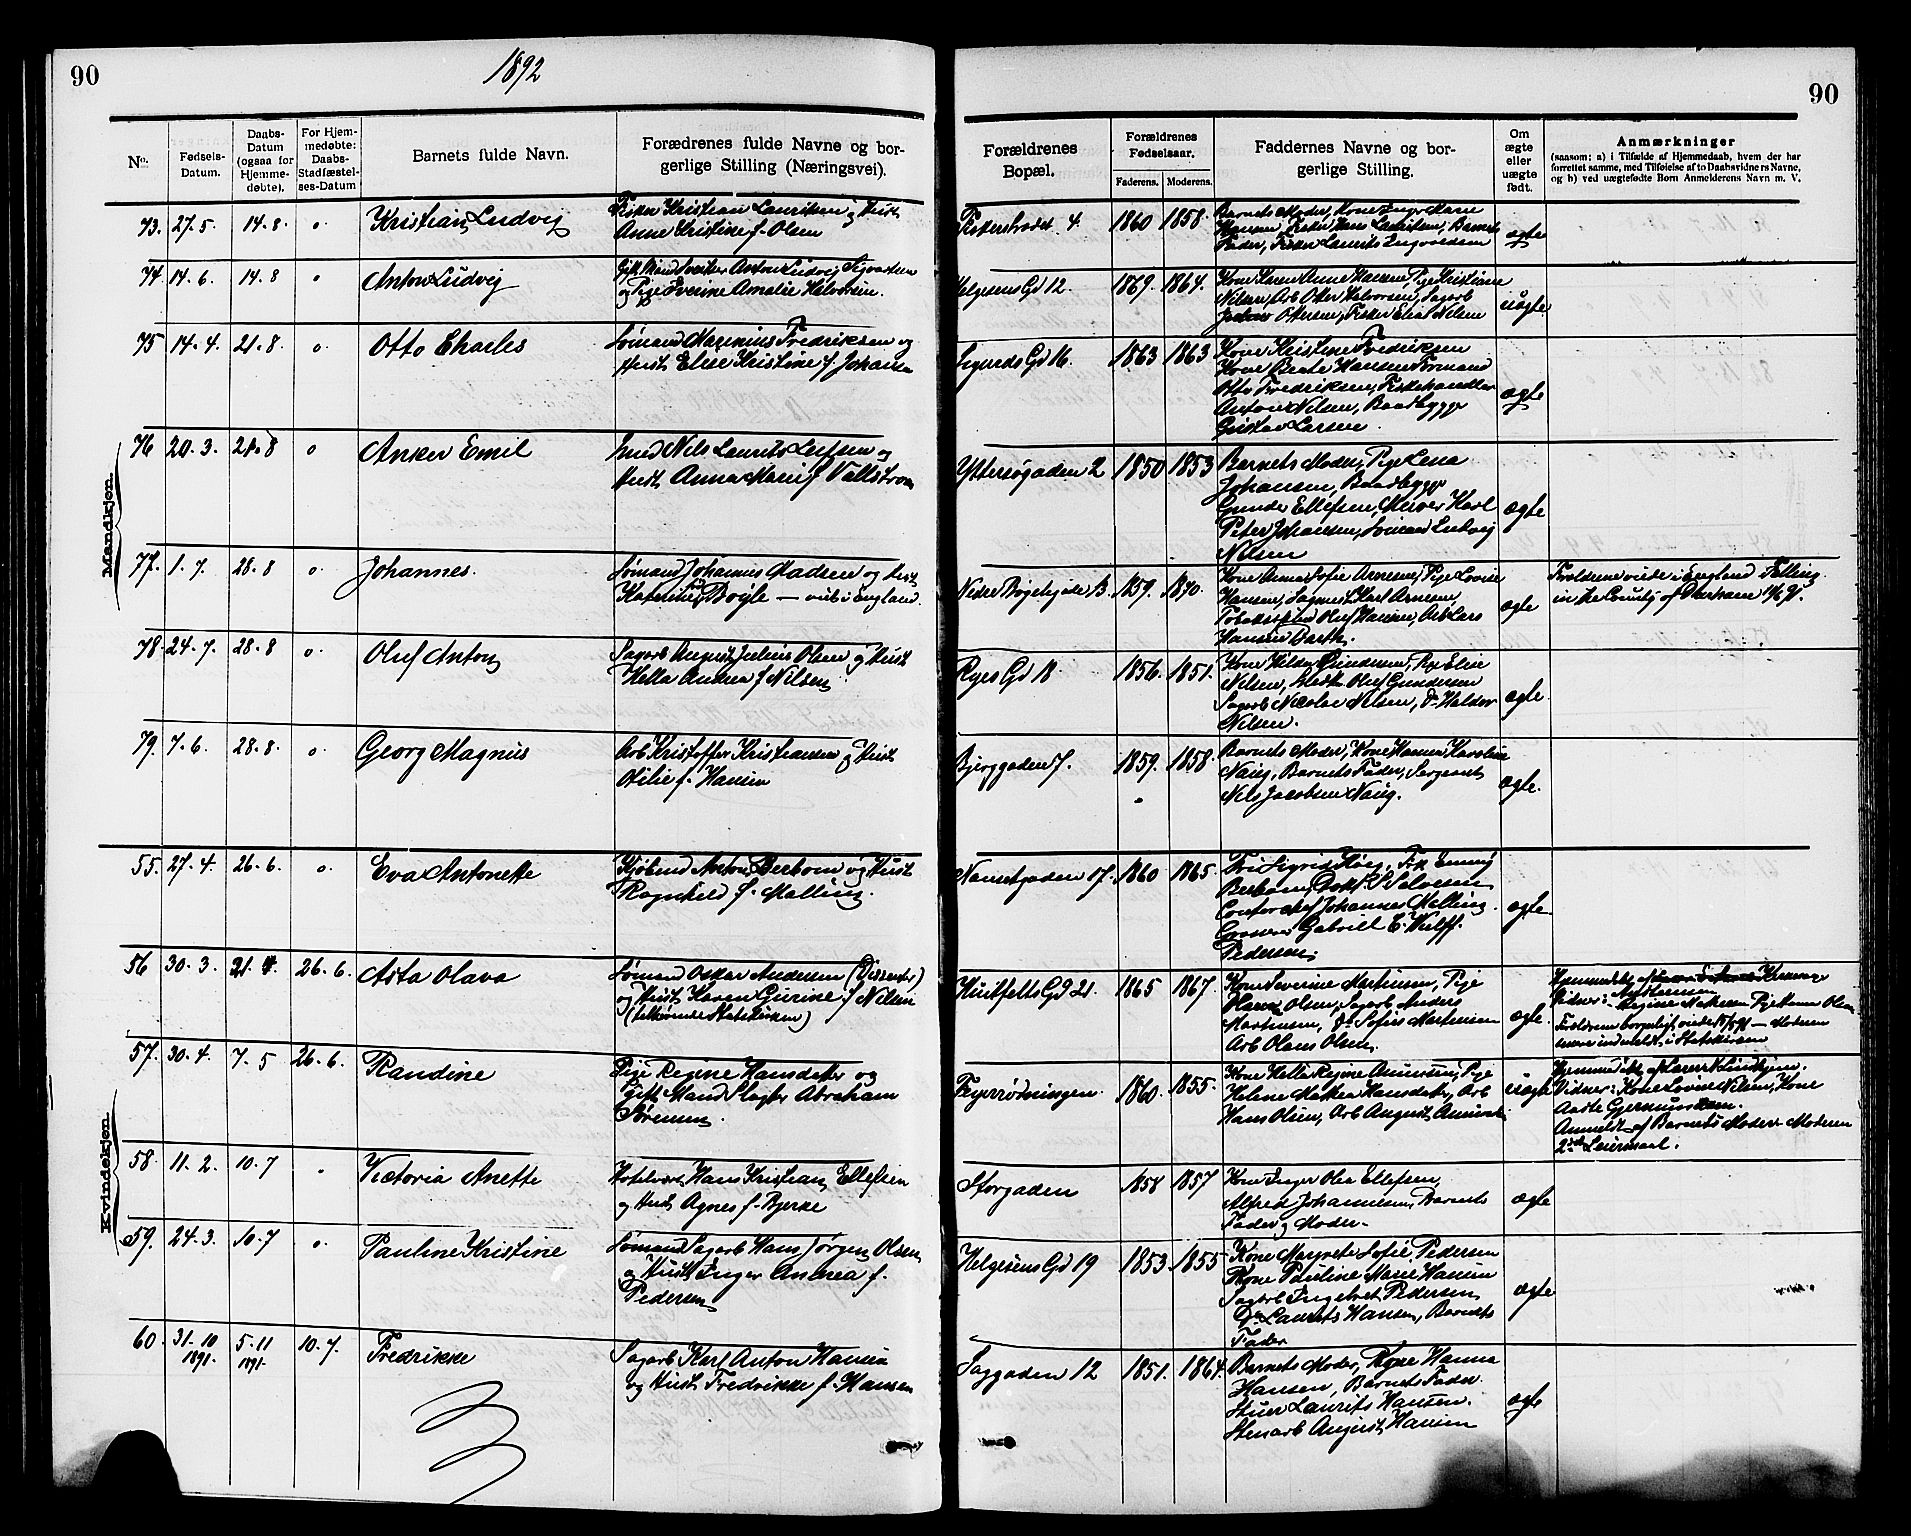 90
1892
90
No.
Fødsels-
Datum.
Daabs-
Datum
(ogsaa for
Hjemme-
døbte).
For Hjem-
medøbte:
Daabs-
Stadfæstel-
ses-Datum
Barnets fulde Navn.
Forædrenes fulde Navne og bor-
gerlige Stilling (Næringsvei).
Forældrenes
Bopæl.
Forældrenes
Fødselsaar.
Faderens. Moderens.
Faddernes Navne og bor-
gerlige Stilling.
Om
ægte
eller
uægte
født.
Anmærkninger
(saasom: a) i Tilfælde af Hjemmedaab, hvem der har
forrettet samme, med Tilføielse af to Daabsvidners Navne,
og b) ved uægtefødte Børn Anmelderens Navn m. V.
Mandkjøn.
73. 27.5. 14.8 o Kristian Ludvig
Fisker Kristian Lauritsen og Hust
Anne Kristine f. Olsen
4. 1860 1858.
Barnets Moder, Kone Inger Marie
Hansen, Fisker Hans Lauritsen, Barnets
Fader, Fisker Laurits Ingvoldsen
ægte
74. 14.6. 14.8 o Anton Ludvig
Gift Mand Anton Ludvig Sigvartsen
og Pige Iverine Amalie Halvorsen.
Helgesens Gd 12. 1869. 1864.
Kone Karen Anne Hansen, Pige Kristiane
Nilsen, Arb Otter Halvorsen, Sagarb
Ottersen, Fisker Elias Nilsen
uægte
75 14.4. 21.8. o Otto Charles
Sømand Marinius Fredriksen og
Hust Elise Kristine f. Johansen
Sigurds Gd 16. 1863 1863
Kone Kristine Fredriksen
Kone Beate Hansen Formand
Otto Fredriksen, Fiskehandler
Anton Nilsen, Baadbygger
Gustav Larsen.
ægte
76 20.3. 21.8 o Anker Emil
Smed Nils Laurits Leifsen og
Hust Anna Marie f. Vallstrøm
Ytterøgaden 2 1850 1853
Barnets Moder, Pige Lena
Johansen, Baadbygger
Gunder Ellefsen, Murer Karl
Peter Johansen, Sømand Ludvig
Nilsen
ægte
77. 1.7. 28.8 o Johannes.
Sømand Johannes Madsen og Hust
Katerine Boyle — viet i England.
Nedre Bøgehejde B. 1859. 1870.
Kone Anna Sofie Arnesen, Pige Lovise
Hansen, Karl Arnesen
Oluf Hansen, Arb Lars
Hansen Barth.
ægte
Forældrene viede i England Felling
in the County of Durham
78. 24.7. 28.8 o. Oluf Anton
Sagarb August Julius Olsen og Hust
Hella Andrea f. Nilsen
Ryes Gd 18 1856. 1851.
Kone Hilda Gundersen, Pige Elise
Nilsen, Oluf Gundersen
Sagarb Nicolai Nilsen, Do Halvor
Nilsen.
ægte
79. 7.6. 28.8. o Georg Magnus
Arb Kristoffer Kristiansen og Hust
Otilie f. Hansen
Bjerggaden 7. 1859. 1858.
Barnets Moder, Kone Hanna Karoline
Naug, Barnets Fader, Sergeant
Nils Jacobsen Naug.
ægte.
Kvindekjøn.
55. 27.4. 26.6. o Eva Antonette
Kjøbmd Anton Beebom og Hust
Ragnhild f. Malling
Nansetgaden 7. 1860 1865.
Sigrid Høeg, Frk Emmy
Johannes Malling.
Gabriel E. Wulff.
Pedersen.
ægte
56 30.3. 21.4. 26.6. Asta Olava
Sømand Oskar Andersen (Dissenter)
og Hust Karen Gurine f. Nilsen
(tilhørende Statskirken)
Huitfelts Gd 21. 1865 1867.
Kone Severine Martinsen, Pige
Hanna Olsen, Sagarb Anders
Martinsen, Do Sofus Martinsen
Arb Olaus Olsen.
ægte.
Forældrene borgerligt viede — Moderen
indmeldt i Statskirken
57. 30.4. 7.5 26.6. Randine
Pige Regine Hansdatter og
Gift Mand Slagter Abraham
Sørensen.
1860. 1855.
Kone Helle Regine Amundsen, Pige
Helene Mathea Hansdatter, Arb
Hans Olsen, Arb August Amundsen
uægte
Hjemmedøbt af
Vidner: Kone Lovise Nilsen, Kone
Aaste Gjermundsen.
Anmeldt af Barnets Moder. Moderen
2det Leiermaal.
58. 11.2. 10.7 Victoria Anette
Hans Kristian Ellefsen
og Hust Agnes f. Bjerke
Storgaden 1858 1857
Kone Inger Olea Ellefsen,
Alfred Johannesen, Barnets
Fader og Moder.
ægte
59. 24.3. 10.7 o. Pauline Kristine
Sømand Sagarb Hans Jørgen Olsen
og Hust Inger Andrea f.
Pedersen
Helgesens Gd 19 1853 1855
Kone Margrete Sofie Pedersen
Kone Pauline Marie Hansen
Sagarb Ingebret Pedersen
Do Laurits Hansen, Barnets
Fader
ægte
60. 31.10 1891. 5.11 1891. 10.7. Fredrikke
Sagarb Karl Anton Hansen
og Hust Fredrikke f. Hansen
Saggaden 12 1851. 1864.
Barnets Moder, Kone Hanna
Hansen, Barnets Fader.
Stuer Laurits Hansen.
Stenarb August Hansen
ægte